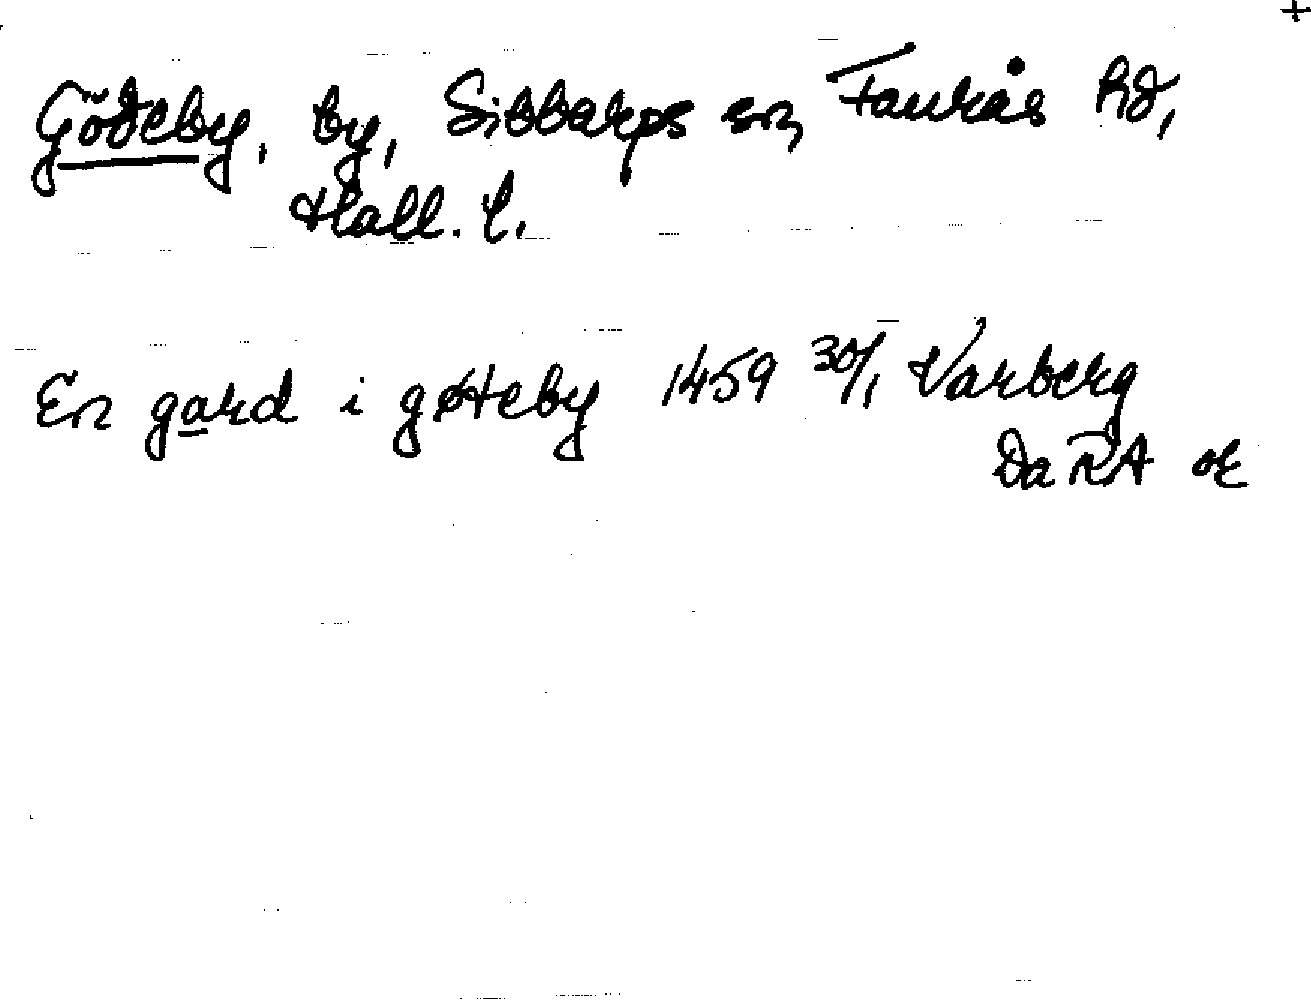 +
Gödeby, by, Sibbarps sn, Faurås hd,
Hall. l.
En gard i gøteby 1459 30/1 Varberg
Da RA or